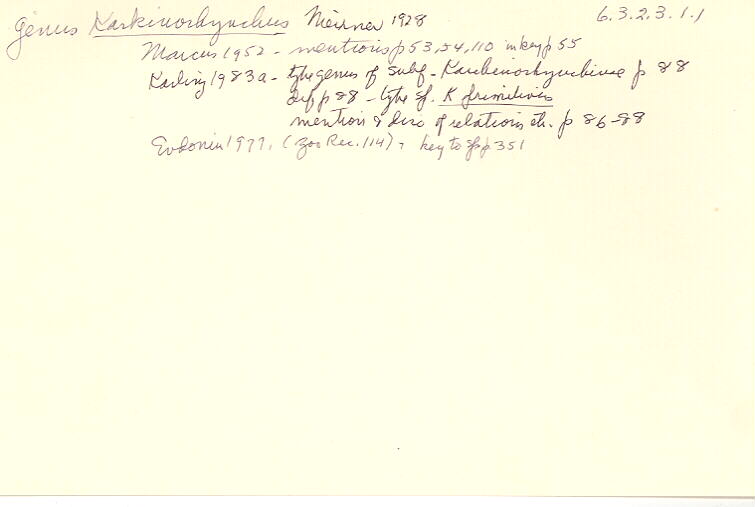 Genus Karkinorhynchus Meixner 1928 6.3.2.3.1.1
Marcus 1952 - mentions p 53, 54, 110 in key p 55
Karling 1983a - type genus of subf - Karkinorhynchinae p 88
def p 88 - type sp. K primitivus
mention & disc of relations etc. p 86-88
Evdonin 1977, (Zoo Rec. 114), key to sp p 351